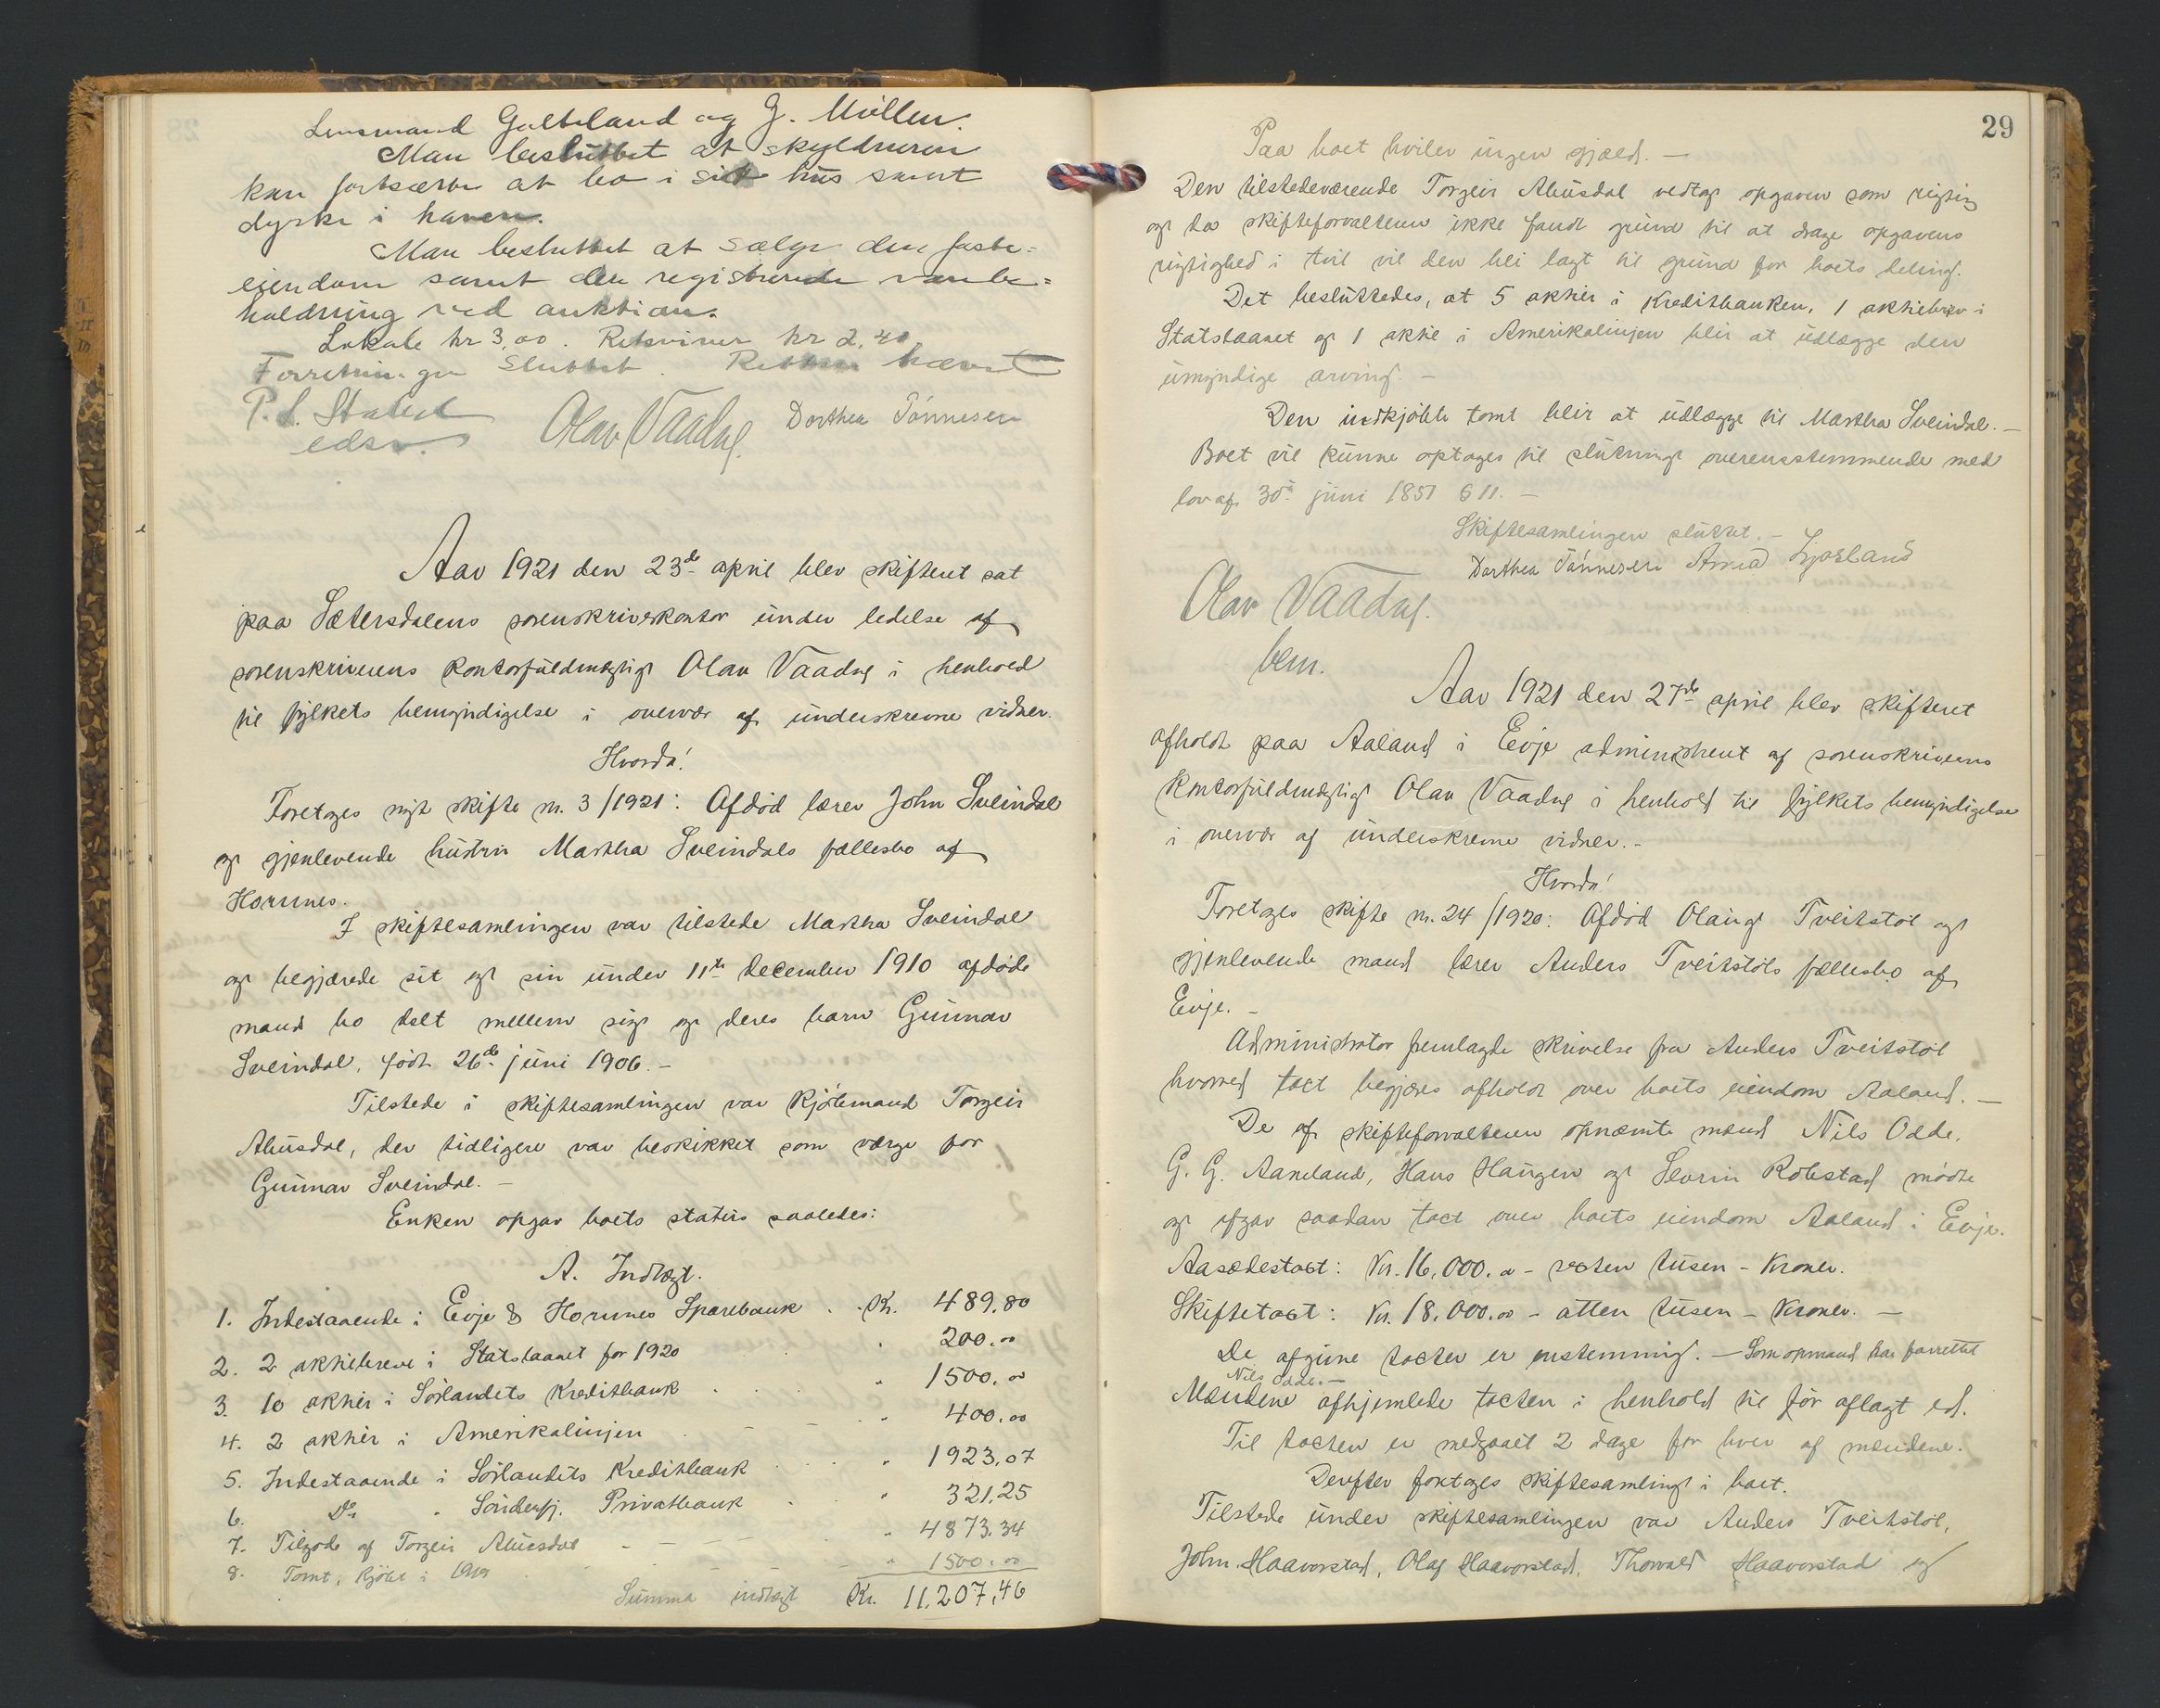 Lensmand Galteland og G. Møller.
Man besluttet at skyldneren
kan fortsætte at bo i sit hus samt
dyrke i haven.
Man besluttet at sælge den faste-
eiendom samt den registrerede varebe-
holdning ved auktion.
Lokale kr 3,00. Retsviner kr 2,40
Forretningen sluttet. Retten hævet
P. S. Stallet Olav Vaadne Dorthea Tønnesen
edsv.
Aar 1921 den 23de april blev skifteret sat
paa Sætersdalens sorenskriverkontor under ledelse af
sorenskriverens kontorfuldmægtig Olav Vaadne i henhold
til fylkets bemyndigelse i overvær af underskrevne vidner.
Hvorda!
Foretages nyt skifte nr. 3/1921: Afdød lærer John Sveindal
og gjenlevende hustru Martha Sveindals fællesbo af
Hornnes.
I skiftesamlingen var tilstede Martha Sveindal
og begjærede sit og sin under 11te december 1910 afdøde
mand bo delt mellem sig og deres barn Gunnar
Sveindal, født 26de juni 1906. -
Tilstede i skiftesamlingen var kjøbmand Torgeir
Abusdal, der tidligere var beskikket som værge for
Gunnar Sveindal. -
Enken opgav boets status saaledes:
A. Indtægt.
1. Indestaaende i Evje & Hornnes Sparebank . . Kr. 489.80
2. 2 aktiebreve i Statslaanet for 1920 " 200.00
3. 10 aktier i Sørlandets Kreditbank . . . " 1500.00
4. 2 aktier i Amerikalinjen - - - " 400.00
5. Indestaaende i Sørlandets Kreditbank . . . " 1923.07
6. Do " Sønderfj. Privatbank . . " 321.25
7. Tilgode af Torgeir Abusdal - - - - " 4873.34
8. Tomt, kjøbt i 1919 - - - " 1500.00
Summa indtægt Kr. 11.207,46
29
Paa boet hviler ingen gjæld. -
Den tilstedeværende Torgeir Abusdal vedtog opgaven som rigtig
og da skifteforvalteren ikke fandt grund til at drage opgavens
rigtighed i tvil vil den bli lagt til grund for boets deling.
Det besluttedes, at 5 aktier i Kreditbanken, 1 aktiebrev i
Statslaanet og 1 aktie i Amerikalinjen blir at udlægge den
umyndige arving. -
Den indkjøbte tomt blir at udlægge til Martha Sveindal. -
Boet vil kunne optages til slutning overensstemmende med
lov af 30te juni 1851 § 11. -
Skiftesamlingen sluttet. -
Dorthea Tønnesen Anna Ljosland
Olav Vaadne.
bem.
Aar 1921 den 27de april blev skifteret
afholdt paa Aaland i Evje administreret af sorenskriverens
kontorfuldmægtig Olav Vaadne i henhold til fylkets bemyndigelse
i overvær af underskrevne vidner. -
Hvorda!
Foretages skifte nr. 24/1920: Afdød Olaug Tveitstøl og
gjenlevende mand lærer Anders Tveitstøls fællesbo af
Evje. -
Administrator fremlagde skrivelse fra Anders Tveitstøl
hvorved taxt begjæres afholdt over boets eiendom Aaland. -
De af skifteforvalteren opnævnte mænd Nils Odde,
G. G. Aaneland, Hans Haugen og Severin Robstad mødte
og afgav saadan taxt over boets eiendom Aaland i Evje.
Aasædestaxt: Kr. 16.000.00 - sexten tusen - kroner.
Skiftetaxt: Kr. 18.000.00 - atten tusen - kroner. -
De afgivne taxter er enstemmig. - Som opmand har forrettet
Nils Odde. -
Mændene afhjemlede taxten i henhold til før aflagt ed.
Til taxten er medgaaet 2 dage for hver af mændene.
Derefter foretages skiftesamling i boet.
Tilstede under skiftesamlingen var Anders Tveitstøl,
John Haavorstad, Olaf Haavorstad, Thorvald Haavorstad og